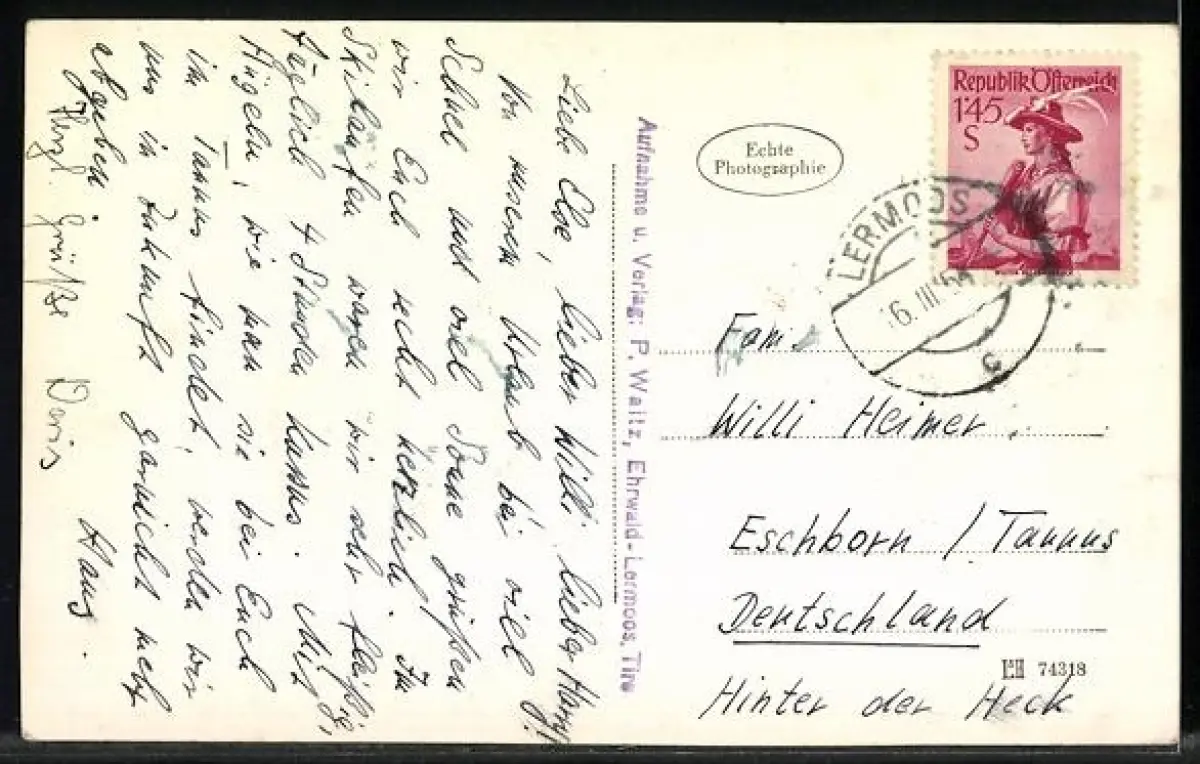 Liebe Else, lieber Willi, lieber
Von unserem Urlaub bei viel
Schnee und viel Sonne grüßen
wir Euch recht herzlich. Im
Skilaufen waren wir sehr fleißig,
täglich 4 Stunden. Mit
Hügeln, wie man sie bei Euch
im Taunus findet, werden wir
uns in Zukunft garnicht mehr
abgeben.
Hans.
Hrzl. Grüße Doris
Aufnahme u. Verlag: P. Waitz, Ehrwald-Lermoos, Tirol
Echte
Photographie
Republik Österreich
1'45
S
LERMOOS
16.III.54
c
Fam.
Willi Heimer.
Eschborn / Taunus
Deutschland
74318
Hinter der Heck